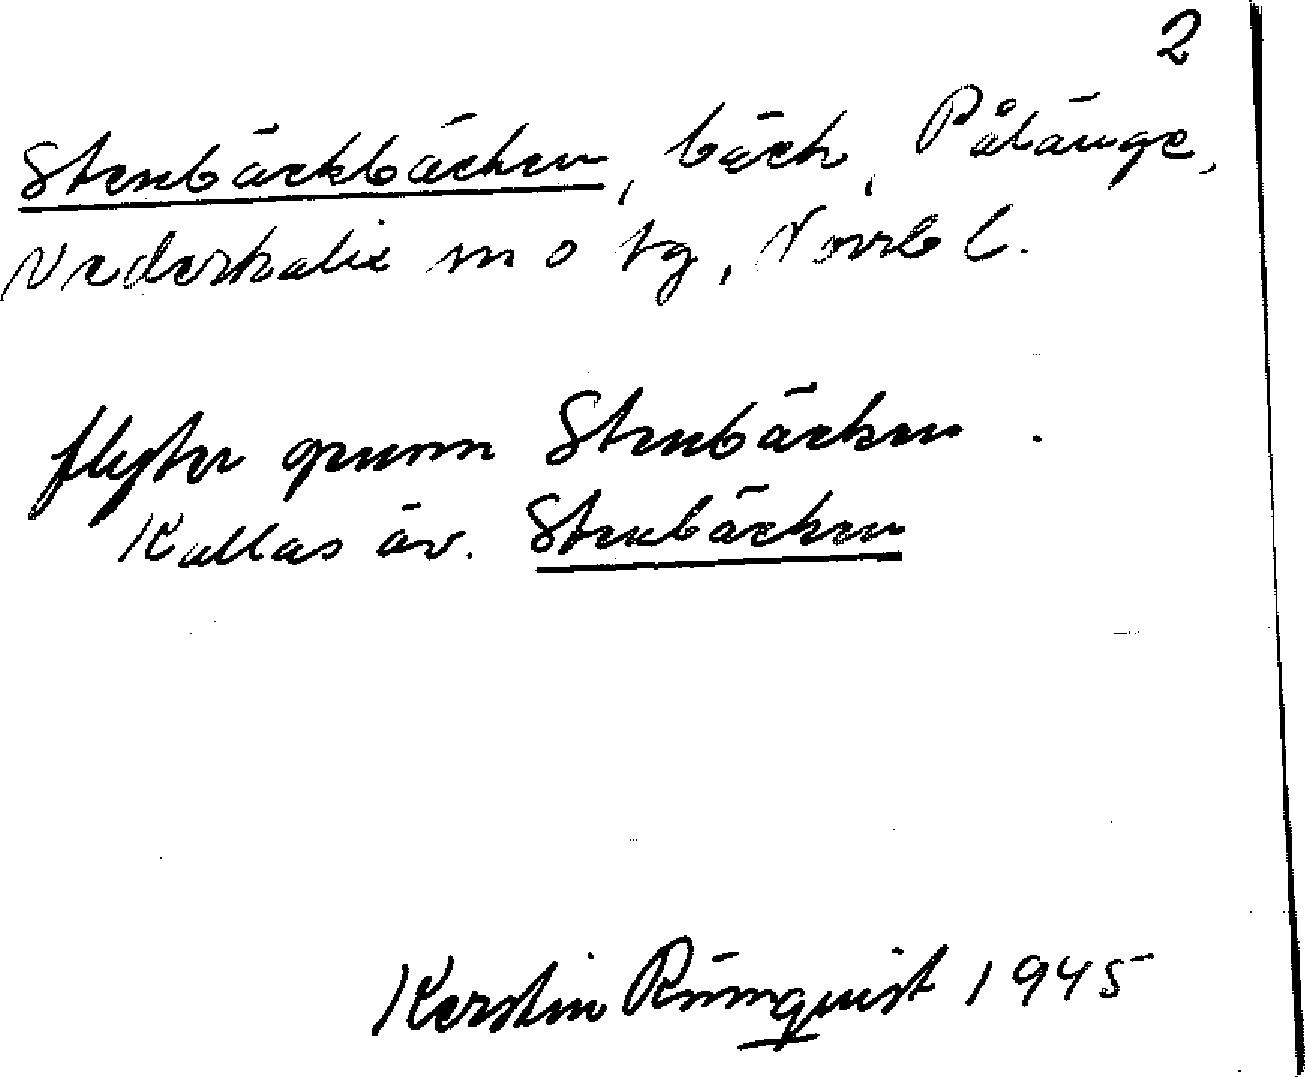 2
Stenbäckbäcken, bäck, Pålänge,
Nederkalix m o tg, Norrb l.
flyter genom Stenbäcken.
Kallas äv. Stenbäcken
Kerstin Rönnquist 1945